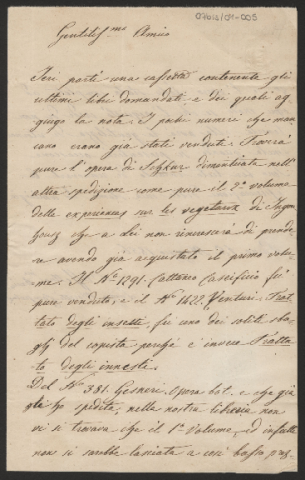 07013/01-005
Gentiliss.mo Amico
Ieri partì una cassetta contenente gli
ultimi libri domandati e dei quali ag
giungo la nota. I pochi numeri che man
cano erano già stati venduti. Troverà
pure l'opera di dimenticata nell'
altra spedizione come pure il 2.o volume
delle experiences sur les vegetaux di Ingen
housz che a Lei non rincrescerà di prende
re avendo già acquistato il primo volu
me. Il N.o 1291. Cattaneo Caseificio fu
pure venduto, e il N.o 1422. Venturi. Trat
tato degli insetti, fu uno dei soliti sba
gli del copista perché è invece Tratta
to degli innesti.
Del N.o 381. Gesneri. Opera bot. e che già
gli ho spedito, nella nostra libreria non
vi si trovava che il 1.o volume, ed infatti
non si sarebbe lasciata a così basso prez-